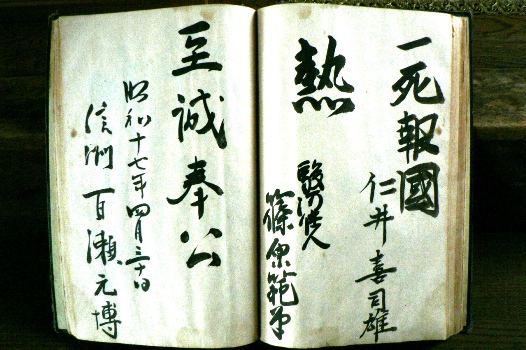 一死報國
仁井喜司雄
熱
駿河浪人
篠原範平
至誠奉公
昭和十七年四月三十日
信州 百瀬元博